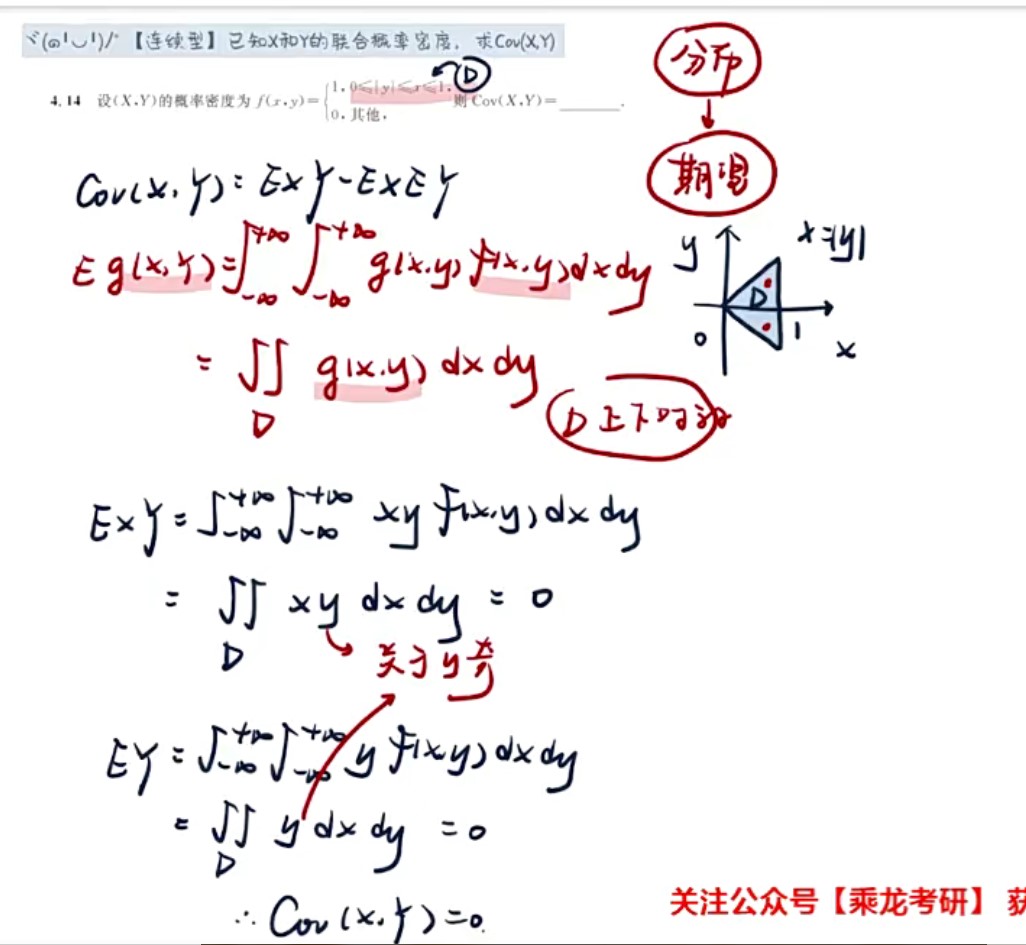 ヾ(๑╹◡╹)ﾉ" 【连续型】已知X和Y的联合概率密度,求Cov(X,Y)
D
4.14 设(X,Y)的概率密度为 f(x,y)={1, 0≤|y|≤x≤1, 0, 其他, 则 Cov(X,Y)=______.
分布
期望
Cov(X,Y)=EXY-EXEY
E g(X,Y)=∫_{-∞}^{+∞}∫_{-∞}^{+∞} g(x,y) f(x,y)dxdy
y x=|y|
D
0 1 x
=∬_D g(x,y) dxdy
D上下对称
EXY=∫_{-∞}^{+∞}∫_{-∞}^{+∞} xy f(x,y)dxdy
=∬_D xy dxdy=0
关于y奇
EY=∫_{-∞}^{+∞}∫_{-∞}^{+∞} y f(x,y)dxdy
=∬_D y dxdy=0
∴Cov(X,Y)=0.
关注公众号【乘龙考研】 获